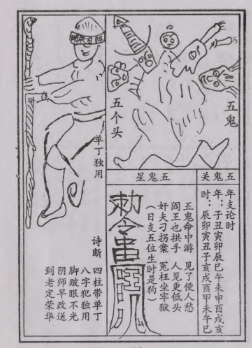 五鬼关
年支论时
年：子丑寅卯辰巳午未申酉戌亥
时：辰卯寅丑子亥戌酉申未午巳
五个头
五鬼星
五鬼命中游 见了便人愁
阎王也拱手 人见更低头
奸夫刁拐案 冤枉坐牢狱
（日支五位生时是狗）
敕令
单丁独用
诗断
四柱带单丁
八字犯独用
脚跛眼不光
阴师早改送
到老定荣华